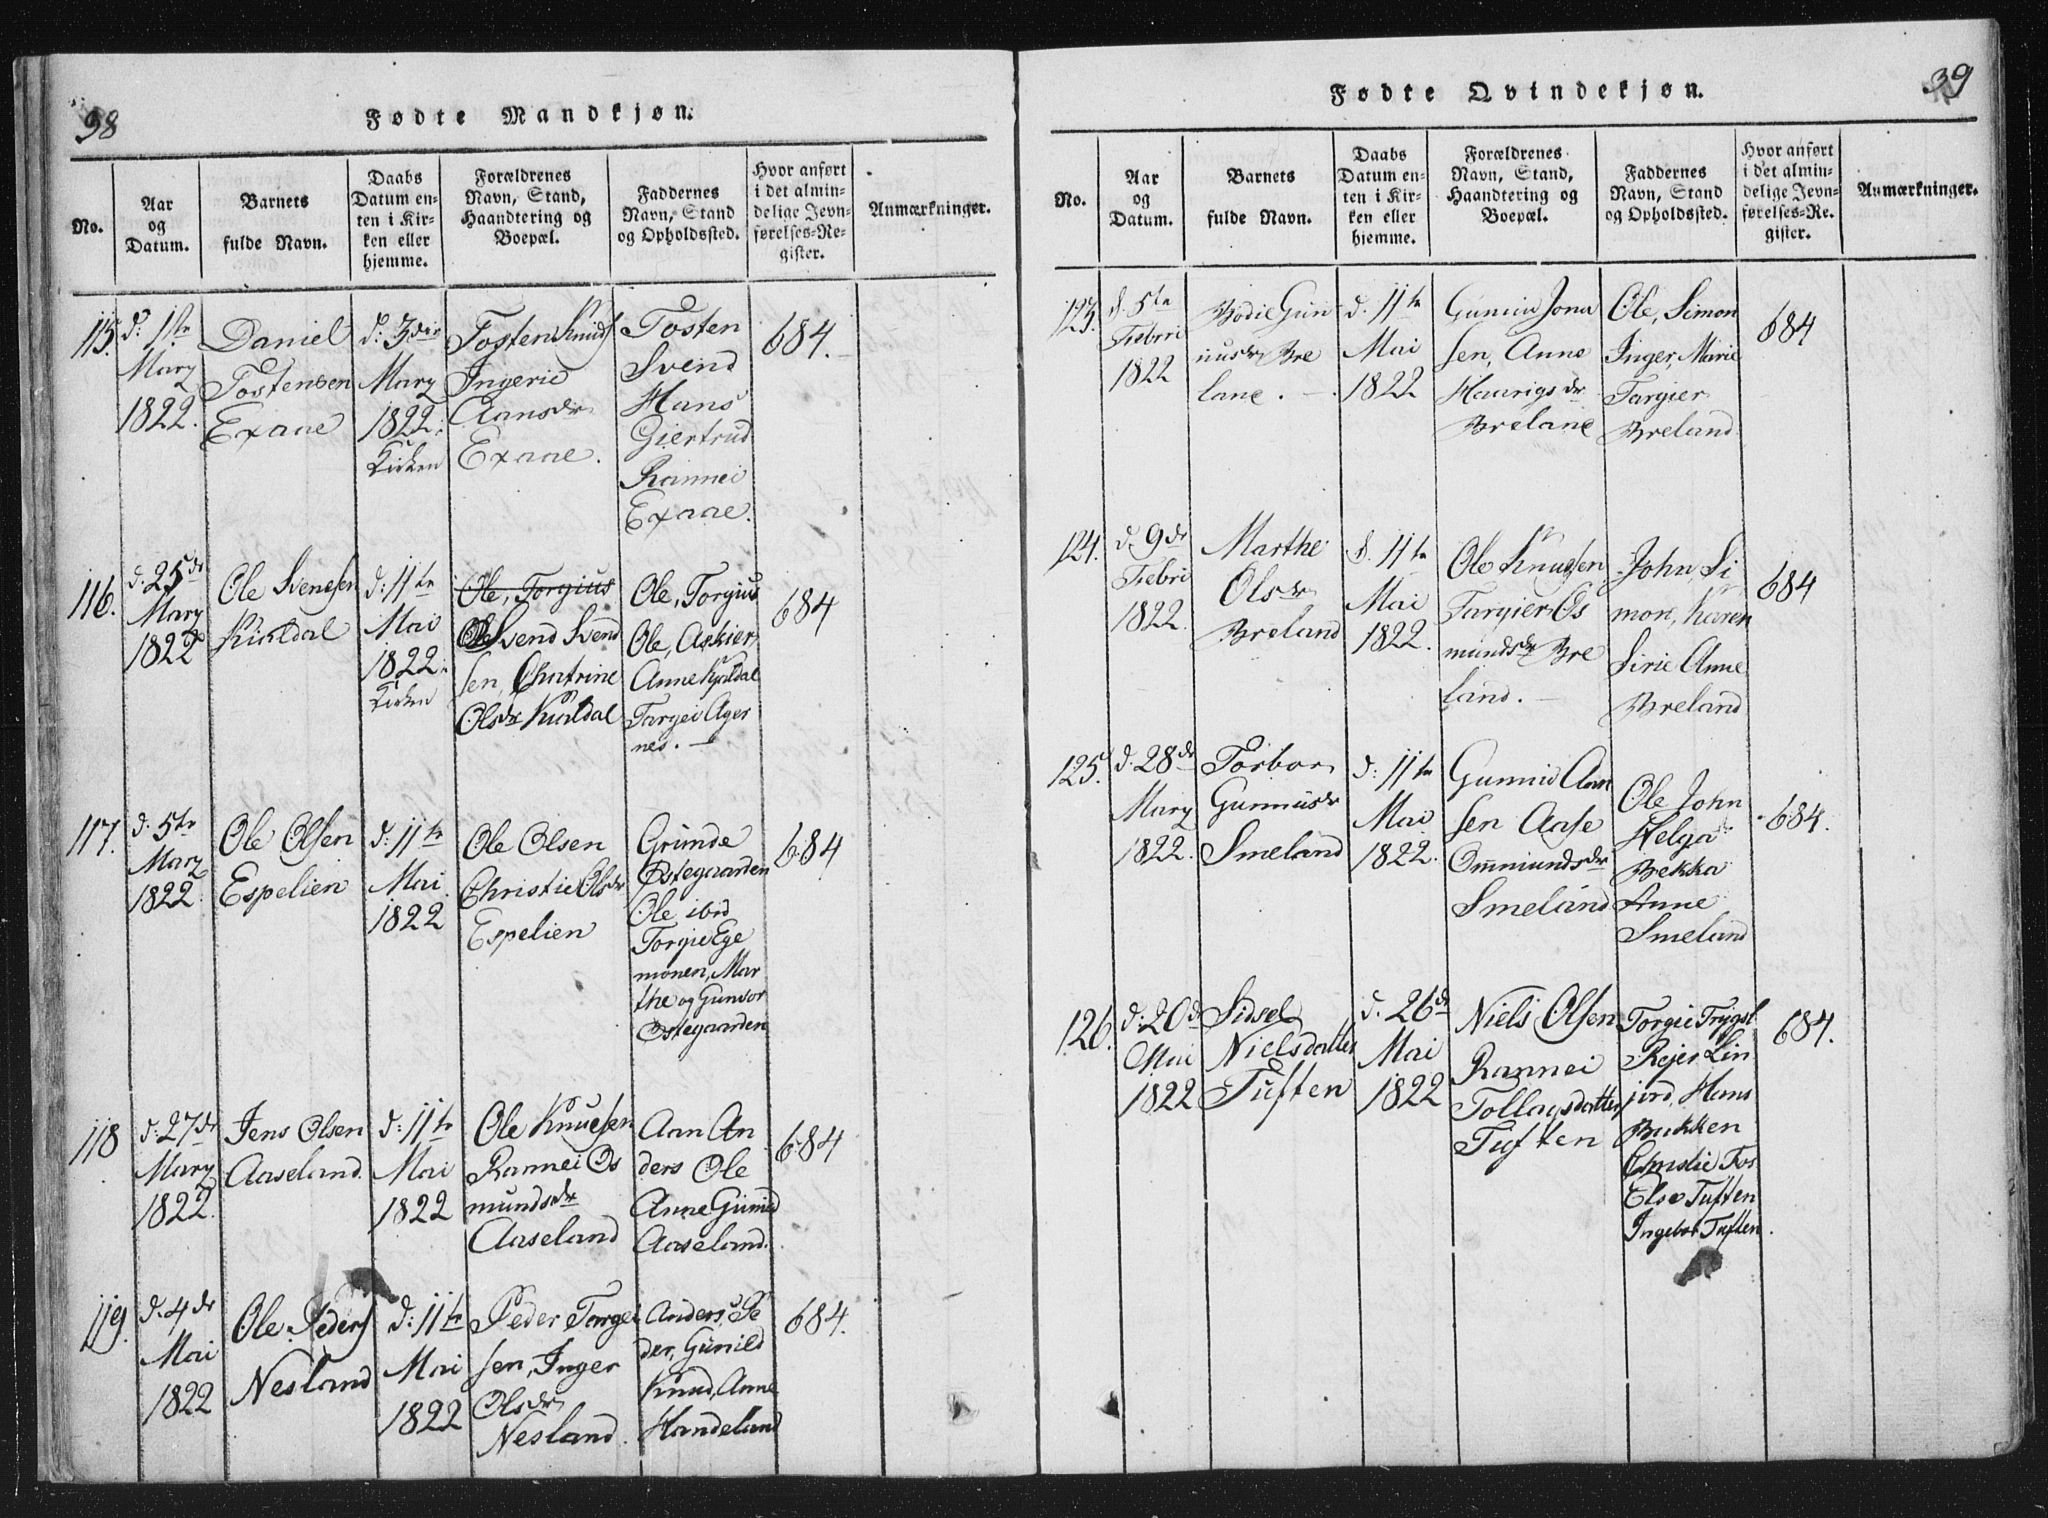 98
Fødte Mandkjøn.
No.
Aar
og
Datum.
Barnets
fulde Navn.
Daabs
Datum en-
ten i Kir-
ken eller
hjemme.
Forældrenes
Navn, Stand,
Haandtering og
Boepæl.
Faddernes
Navn, Stand
og Opholdssted.
Hvor anført
i det almin-
delige Jevn-
førelses-Re-
gister.
Anmærkninger.
115.
d: 1ste
Marz
1822.
Daniel
Tostensen
Exaae
d: 3die
Marz
1822.
Kirken
Tosten Knuds
Ingerie
Aansdr
Exaae.
Tosten
Svend
Hans
Giertrud
Rannei
Exaae.
684.
116.
d. 25de
Marz
1822
Ole Svensen
Kialdal
d: 11te
Mai
1822.
Kirken
Ole, Torgius
Ole Svend Svend
sen, Chatrine
Olsdr Kialdal
Ole, Torgius
Ole, Askier,
Anne Kjaldal
Targei Ager
nes. —
684
117.
d: 5te
Marz
1822.
Ole Olsen
Espelien
d: 11te
Mai
1822
Ole Olsen
Christie Olsdr
Espelien
Grunde
Østegaarden
Ole ibid
Torgie Ege
monen, Mar
the og Gunvor
Østegaarden
684
118
d: 27de
Marz
1822.
Jens Olsen
Aaseland.
d: 11te
Mai
1822
Ole Knudsen
Rannei Os
mundsdr
Aaseland
Aan An
ders Ole
Anne Gunild
Aaseland.
684
119.
d. 4de
Mai
1822
Ole Peders
Nesland
d: 11te
Mai
1822
Peder Targei
sen, Inger
Olsdr
Nesland.
Anders, Pe
der, Gunild
Knud, Anne
Handeland
684.
39
Fødte Qvindekjøn.
No.
Aar
og
Datum.
Barnets
fulde Navn.
Daabs
Datum en-
ten i Kir-
ken eller
hjemme.
Forældrenes
Navn, Stand,
Haandtering og
Boepæl.
Faddernes
Navn, Stand
og Opholdssted.
Hvor anført
i det almin-
delige Jevn-
førelses-Re-
gister.
Anmærkninger.
123.
d. 5te
Febri
1822
Bodie Gun
nusdr Bre
lane. —
d. 11te
Mai
1822
Gunnu Jona
sen, Anne
Haavigsdr
Brelane
Ole, Simon
Inger, Marie
Targier
Breland
684
124.
d. 9de
Febri
1822.
Marthe
Olsdr
Breland
d. 11te
Mai
1822.
Ole Knudsen
Targier Os
mundsdr Bre
land. —
John, Si
mon, Karen
Sirie Anne
Breland
684
125.
d. 28de
Marz
1822.
Torbor
Gunnusdr
Smeland
d: 11te
Mai
1822.
Gunnu Aan
sen Aase
Ommundsdr
Smeland
Ole John
Helga
Bekka
Anne
Smeland
684.
126.
d: 20de
Mai
1822
Sidsel
Nielsdatter
Tuften
d. 26de
Mai
1822
Niels Olsen
Rannei
Tollagsdatter
Tuften
Torgei Trygsl.
Rejer Lin
jord, Hans
Bukken
Christie Tor
Else Tuften
Ingebor Tuften.
684.